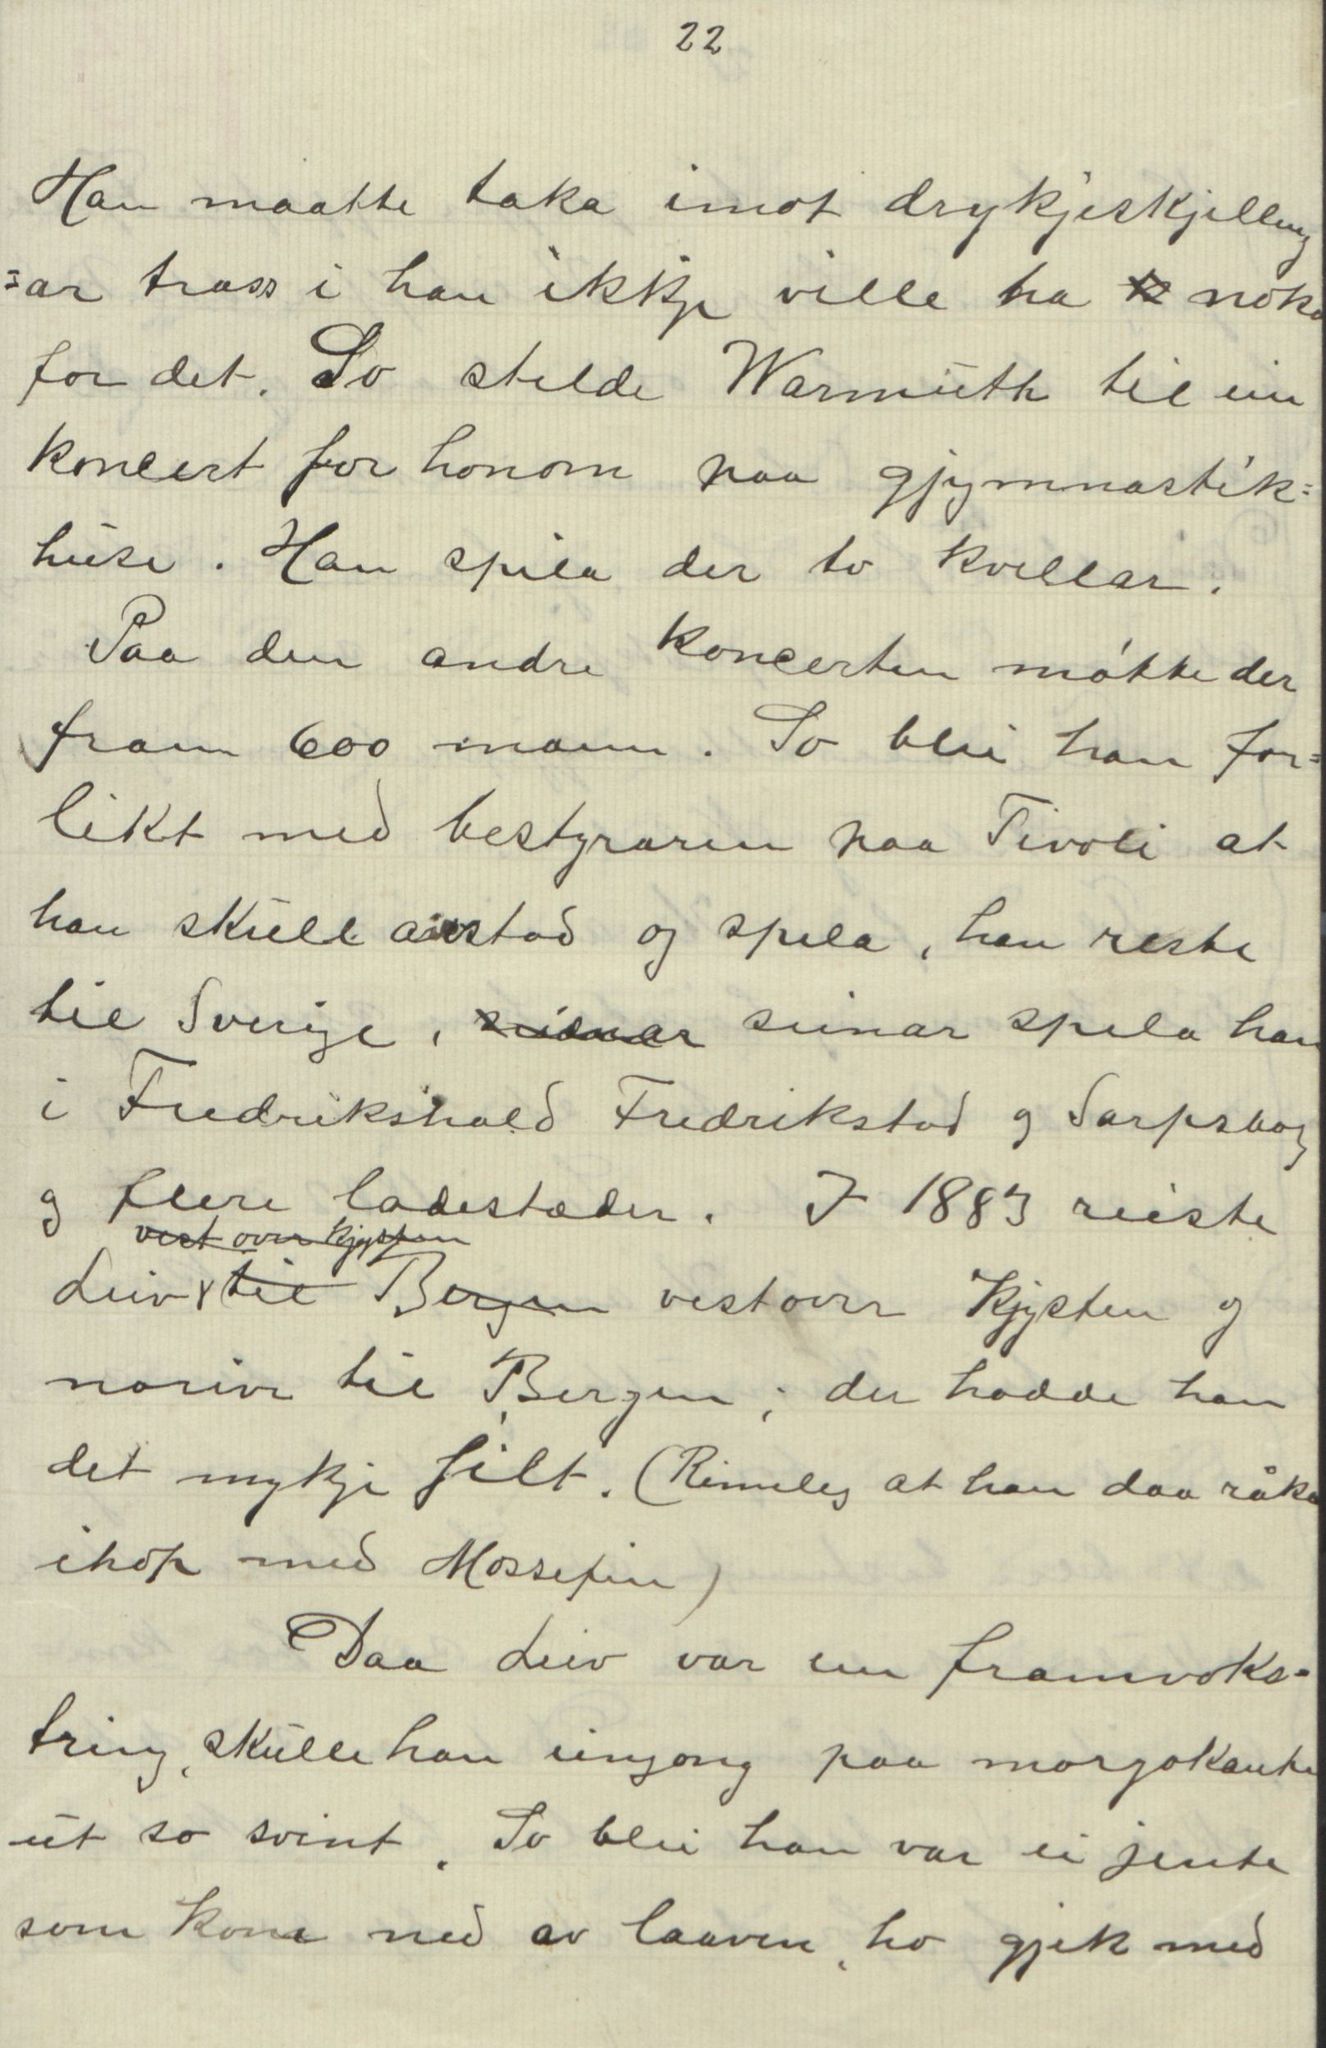 22
Han maatte taka imot drykjeskjelling
=ar trass i han ikkje ville ha noko
for det. So stelde Warmuth til ein
koncert for honom paa gjymnastik=
huse. Han spila der to kvellar.
Paa den andre koncerten møtte der
fram 600 mann. So blei han for=
likt med bestyraren paa Tivoli at
han skulle avstad og spela, han reste
til Sverige, seinar spela han
i Fredrikshald Fredrikstad og Sarpsborg
og fleire ladestæder. I 1883 reiste
vest over kjysten
Leiv til Bergen vestover Kjysten og
norivi til Bergen; der hadde han
det mykje gilt. (Rimeleg at han daa råka
ihop med Mossefin)
Daa Leiv var ein framvoks-
tring, skulle han eingong paa morgokanten
ut so svint. So blei han var ei jente
som kom ned av laaven, ho gjek med